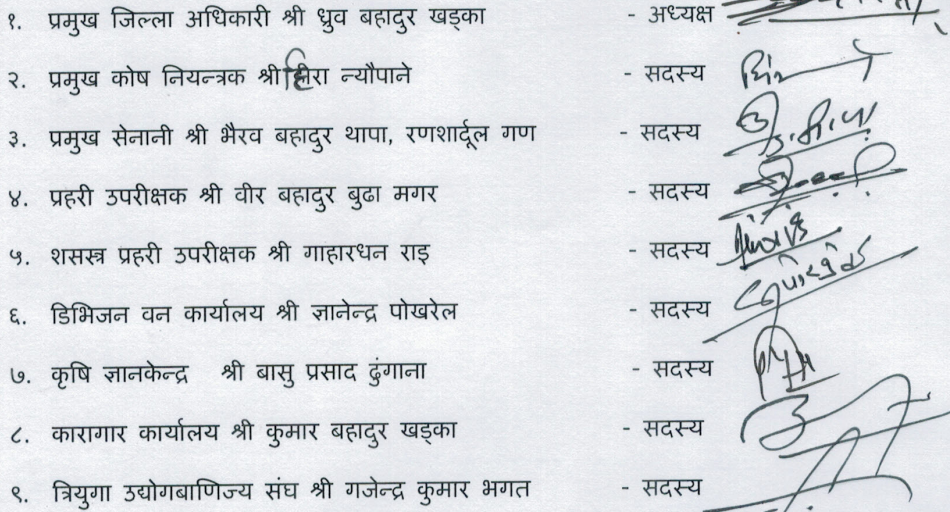 १. प्रमुख जिल्ला अधिकारी श्री ध्रुव बहादुर खड्का - अध्यक्ष
२. प्रमुख कोष नियन्त्रक श्री हिरा न्यौपाने - सदस्य
३. प्रमुख सेनानी श्री भैरव बहादुर थापा, रणशार्दूल गण - सदस्य
४. प्रहरी उपरीक्षक श्री वीर बहादुर बुढा मगर - सदस्य
५. शसस्त्र प्रहरी उपरीक्षक श्री गाहारधन राइ - सदस्य
६. डिभिजन वन कार्यालय श्री ज्ञानेन्द्र पोखरेल - सदस्य
७. कृषि ज्ञानकेन्द्र श्री बासु प्रसाद ढुंगाना - सदस्य
८. कारागार कार्यालय श्री कुमार बहादुर खड्का - सदस्य
९. त्रियुगा उद्योगबाणिज्य संघ श्री गजेन्द्र कुमार भगत - सदस्य